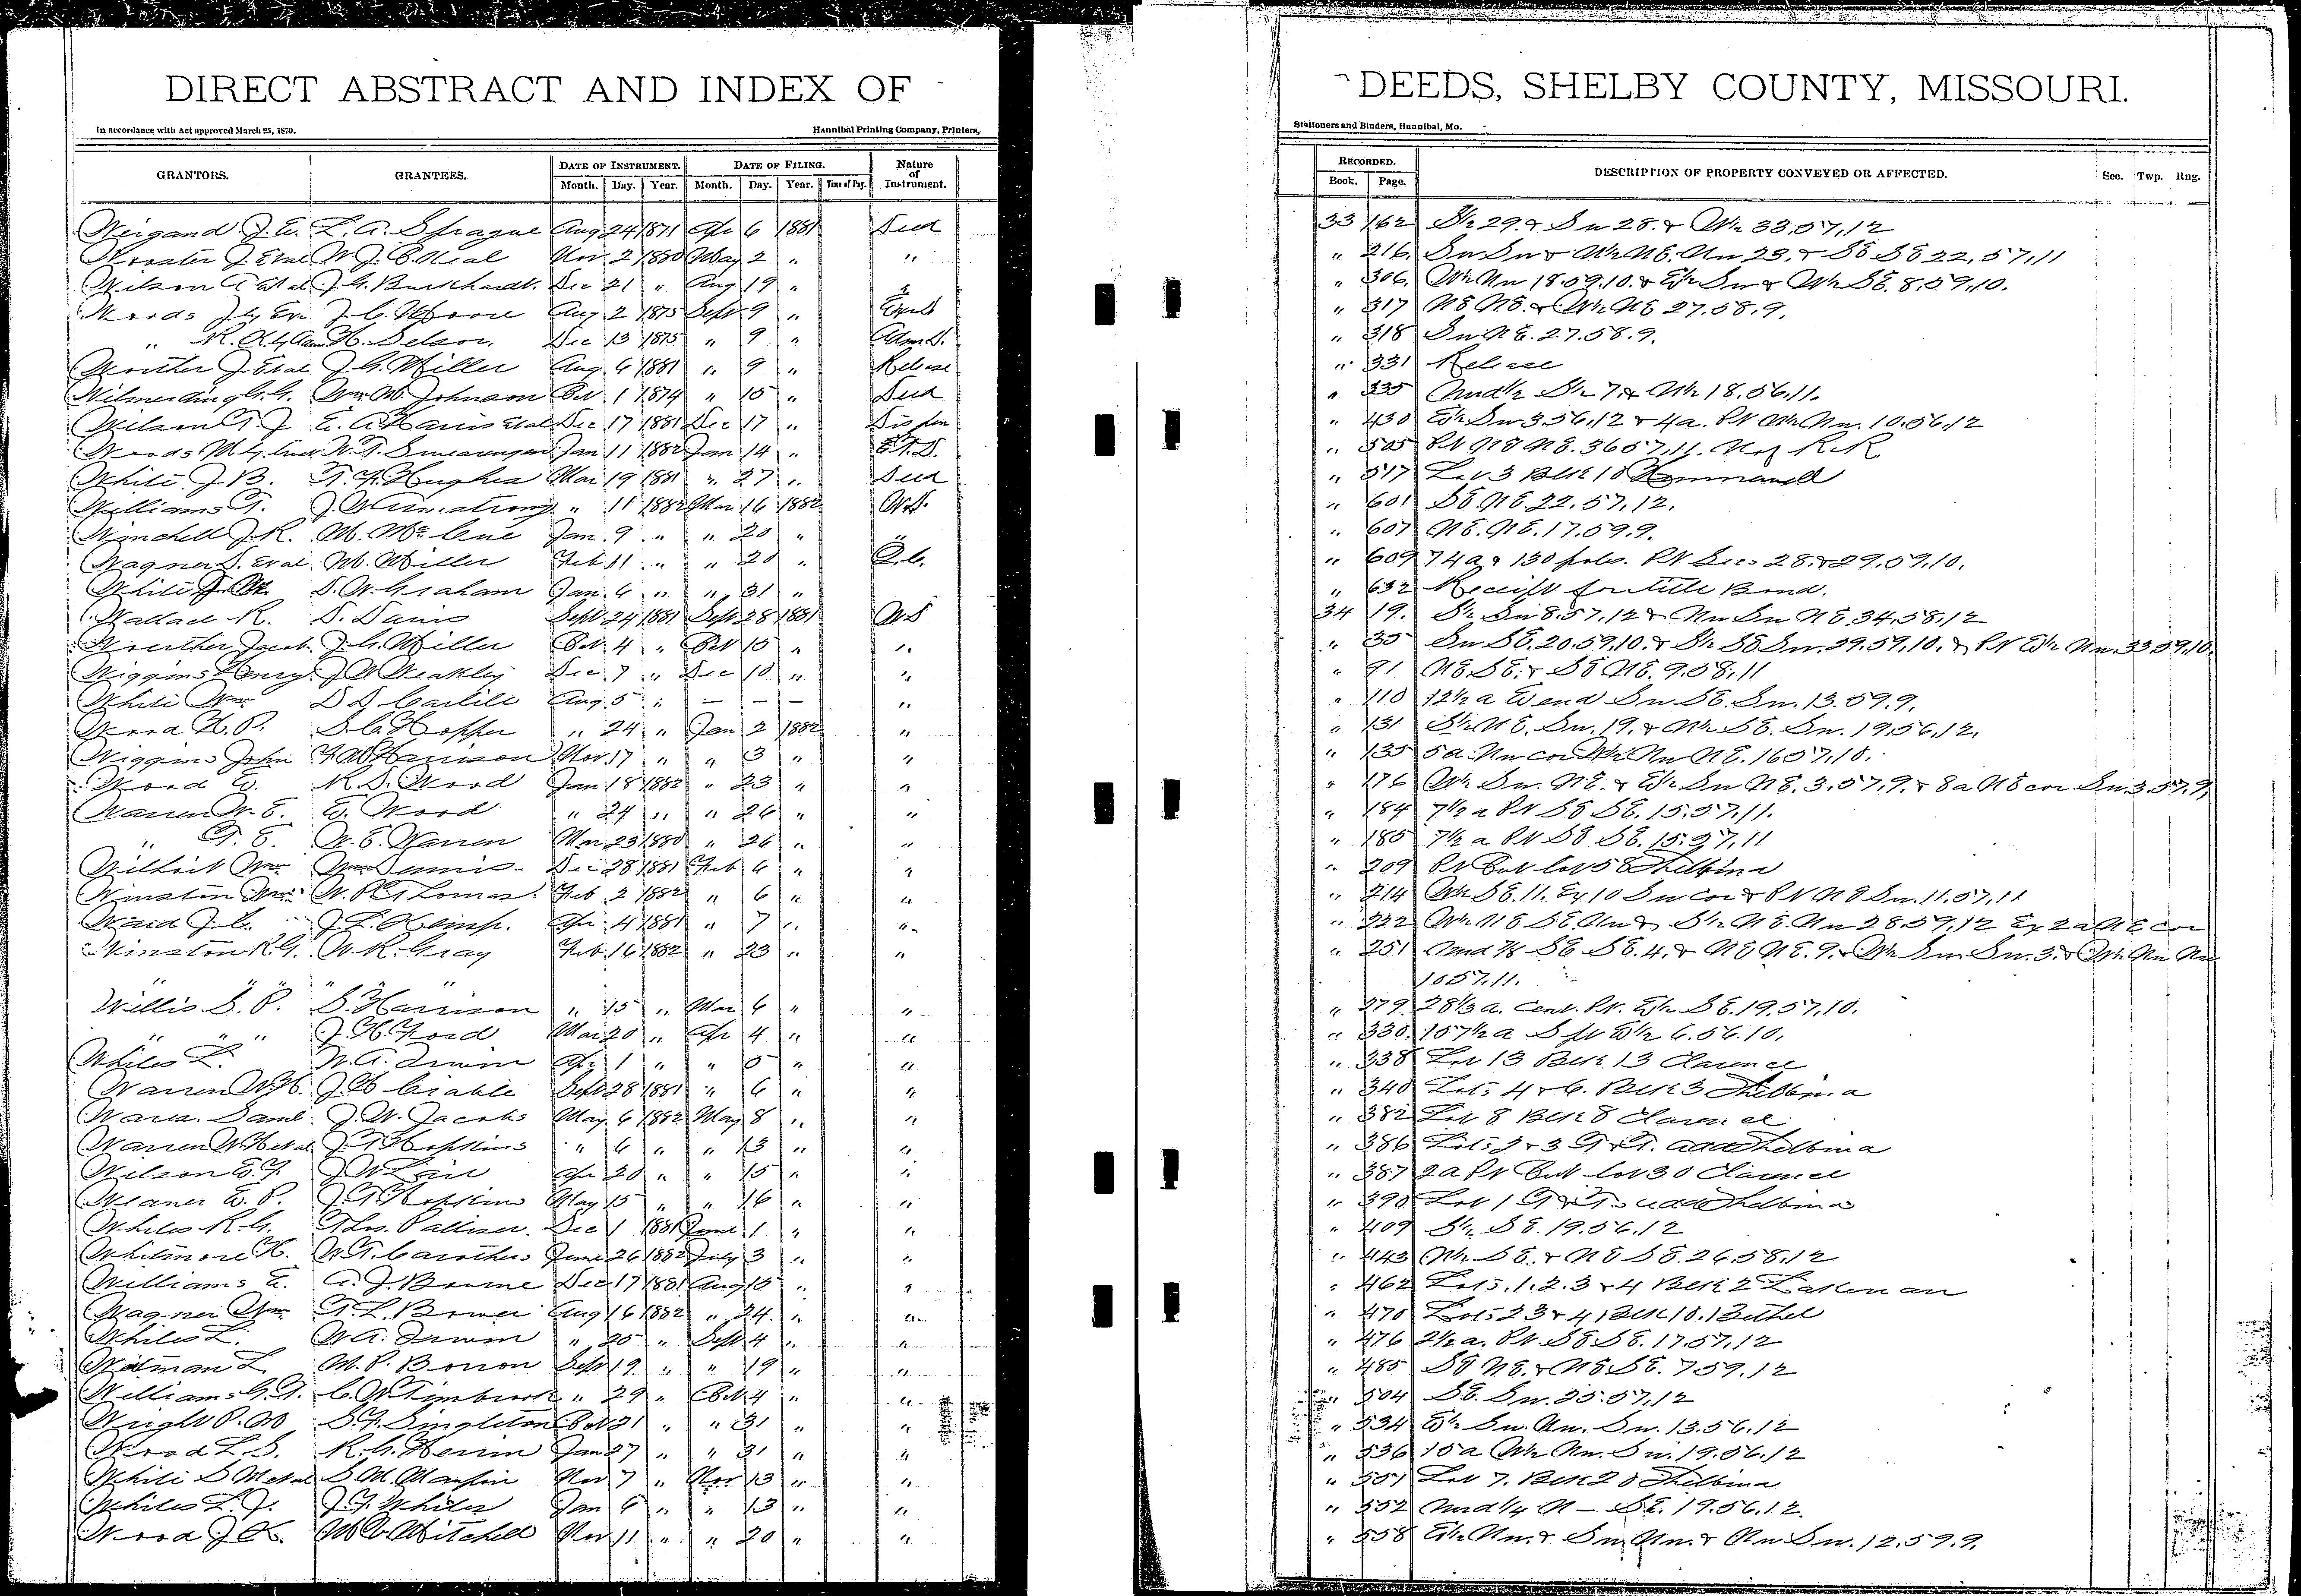 DIRECT ABSTRACT AND INDEX OF
DEEDS, SHELBY COUNTY, MISSOURI.
In accordance with Act approved March 25, 1870.
Hannibal Printing Company, Printers,
Stationers and Binders, Hannibal, Mo.
GRANTORS. GRANTEES. DATE OF INSTRUMENT. DATE OF FILING. Nature of Instrument. RECORDED. DESCRIPTION OF PROPERTY CONVEYED OR AFFECTED. Sec. Twp. Rng.
Month. Day. Year. Month. Day. Year. Time of Day. Book. Page.
Weigand J. E. L. A. Sprague Aug 24 1871 Apr 6 1881 Deed 33 162 S½ 29. & Sw 28. & W½ 33,57,12
Nov 2 1880 May 2 " " " 216. Sw Sw & W½ NE. Nw 23. & SE SE 22,57,11
Wilson J. G. Burkhardt. Dec 21 " Aug 19 " " 306. W½ Nw 18.59.10. & E½ Sw & W½ SE. 8,59,10.
Woods J. C. Moore Aug 2 1875 Sept 9 " " 317 NE NE. & W½ NE 27.58.9.
" Dec 13 1875 " 9 " Adm D. " 318 Sw NE. 27.58.9.
J. G. Miller Aug 6 1881 " 9 " Release " 331 Release
Wilmerding G. G. Wm. M. Johnson Oct 1 1874 " 15 " Deed " 335 Und ½ S½ 7. & N½ 18.56.11.
Wilson Dec 17 1881 Dec 17 " " 430 E½ Sw 3.56.12 & 4a. Pt N½ Nw. 10.56.12
Woods Jan 11 1882 Jan 14 " " 505 Pt NE NE. 36 57,11. N of R.R
White J. B. T. Y. Hughes Mar 19 1881 " 27 " Deed " 517 Lot 3 Blk 10 Hunnewell
Williams T. J. W Armstrong " 11 1882 Mar 16 1882 W.D. " 601 SE NE. 22.57,12.
Winchell J. R. M. McCue Jan 9 " " 20 " " " 607 NE. NE. 17.59.9.
Wagner D. Et al. M. Miller Feb 11 " " 20 " Q.C. " 609 74 a & 130 poles. Pt Secs 28. & 29.59.10.
White J. M. D. W. Graham Jan 6 " " 31 " " 632 Receipt for title Bond.
Wallace R. D. Davis Sept 24 1881 Sept 28 1881 W D 34 19. S½ Sw 8.57.12 & Nw Sw NE. 34,58,12
Jacob. J. G. Miller Oct. 4 " Oct 15 " " " 35 Sw SE. 20.59,10. & S½ SE Sw. 29.59,10. & Pt E½ Nw. 33.59,10.
Wiggins Henry. J W Weakley Dec 7 " Dec 10 " " " 91 NE SE. & SE NE. 9.58,11
White Wm. D D Carlile Aug 5 " — — — " " 110 12½ a E end Sw SE. Sw. 13.59.9.
Wood S. C. Hopper " 24 " Jan 2 1882 " " 131 S½ NE. Sw. 19. & N½ SE. Sw. 19.56,12.
Wiggins John F. W Harrison Nov 17 " " 3 " " " 135 5a. Nw cor W½ Nw NE. 16 57,10.
Wood E. R. D. Wood Jan 18 1882 " 23 " " " 176 W½ Sw. NE. & E½ Sw NE. 3.57,9. & 8a NE cor Sw. 3.57.9,
Warren W. E. E. Wood " 24 " " 26 " " " 184 7½ a Pt SE SE. 15.57,11.
" T. E. W. E. Warren Mar 23 1880 " 26 " " " 185 7½ a Pt SE SE. 15.57,11
Wilhoit Wm. Wm Dec 28 1881 Feb 6 " " " 209 Pt Out lot 58 Shelbina
Winston Wm. W. P. Thomas. Feb 2 1882 " 6 " " " 214 W½ SE. 11. Ex 10 Sw Cor & Pt NE Sw. 11.57,11
Waid J. C. J. L. Apr 4 1881 " 7 " " " 222 W½ NE SE. Nw & S½ NE. Nw 28 59,12 Ex 2a NE cor
Winston R. G. W. R. Gray Feb 16 1882 " 23 " " " 251 Und ⅞ SE SE. 4. & NE NE. 9. & W½ Sw Sw. 3. & W½ Nw Nw
" " " " 10 57.11.
Willis S. P. S. Harrison " 15 " Mar 6 " " " 279. 28⅓ a. Cent. Pt. E½ SE. 19.57,10.
" " " J. H. Ford Mar 20 " Apr 4 " " " 330. 157½ a S pt E½ 6.56.10.
Whiles L. W. A. Irwin Apr 1 " " 5 " " " 338 Lot 13 Blk 13 Clarence
Warren W. H. Sept 28 1881 " 6 " " " 340 Lots 4 & 6. Blk 3 Shelbina
Ware Saml. J. W. Jacobs May 6 1882 May 8 " " " 382 Lot 8 Blk 8 Clarence
Warren W H et al J. T Hopkins " 6 " " 13 " " " 386 Lots 2 & 3 T & T. add Shelbina
Wilson E. Y. J W Lair Apr 20 " " 15 " " " 387 2a Pt Out lot 30 Clarence
E. P. J. T Hopkins May 15 " " 16 " " " 390 Lot 1 T & T's add Shelbina
Whiles R. G. Thos. Palliser. Dec 1 1881 June 1 " " " 409 S½ SE. 19.56.12
Whitmore H. W. T. Carothers June 26 1882 July 3 " " " 443 W½ SE. & NE SE. 26.58.12
Williams E. A. J. Bourne Dec 17 1881 Aug 15 " " " 462 Lots. 1. 2. 3 & 4 Blk 2 Lakenan
Wagner Wm. T. L. Bower Aug 16 1882 " 24 " " " 470 Lots 2 3 & 4, Blk 10. Bethel
Whiles L. W A. Irwin " 25 " Sept 4 " " " 476 2½ a. Pt. SE SE. 17.57,12
L. M. P. Sept 19 " " 19 " " " 485 SE NE. & NE SE. 7 59.12
Williams G. T. C. W. Timbrook " 29 " Oct 4 " " " 504 SE. Sw. 25.57,12
Wright P. M S. Y. Singleton Oct 21 " " 31 " " " 534 E½ Sw. Nw. Sw. 13.56.12
Wood L. S. R. G. Jan 27 " " 31 " " " 536 15 a W½ Nw. Sw. 19.56.12
White S M et al S. M. Maupin Nov 7 " Nov 13 " " " 551 Lot 7. Blk 28 Shelbina
Whiles L. J. J. Y. Whiles Jan 6 " " 13 " " " 552 Und ¼ N — SE. 19.56.12.
Wood J. K. M. C. Mitchell Nov 11 " " 20 " " " 558 E½ Nw. & Sw Nw. & Nw Sw. 12.59.9.